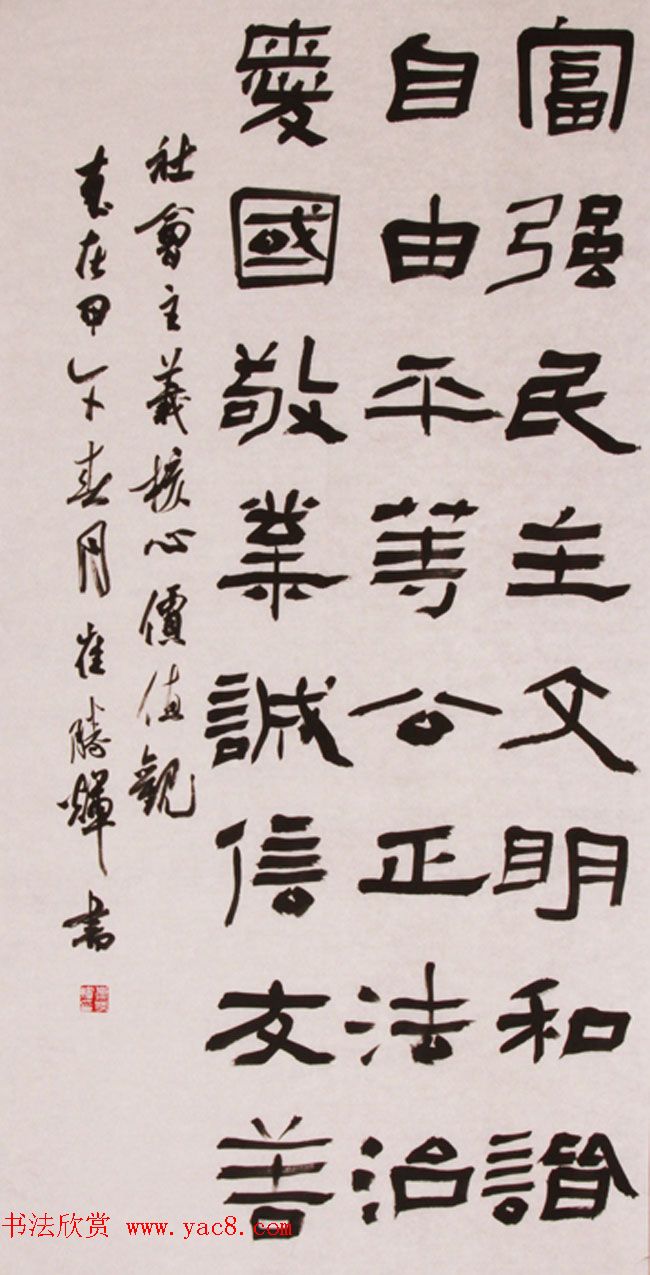 富强民主文明和諧
自由平等公正法治
愛國敬業誠信友善
社會主義核心價值觀
歲在甲午春月崔勝輝書
书法欣赏 www.yac8.com